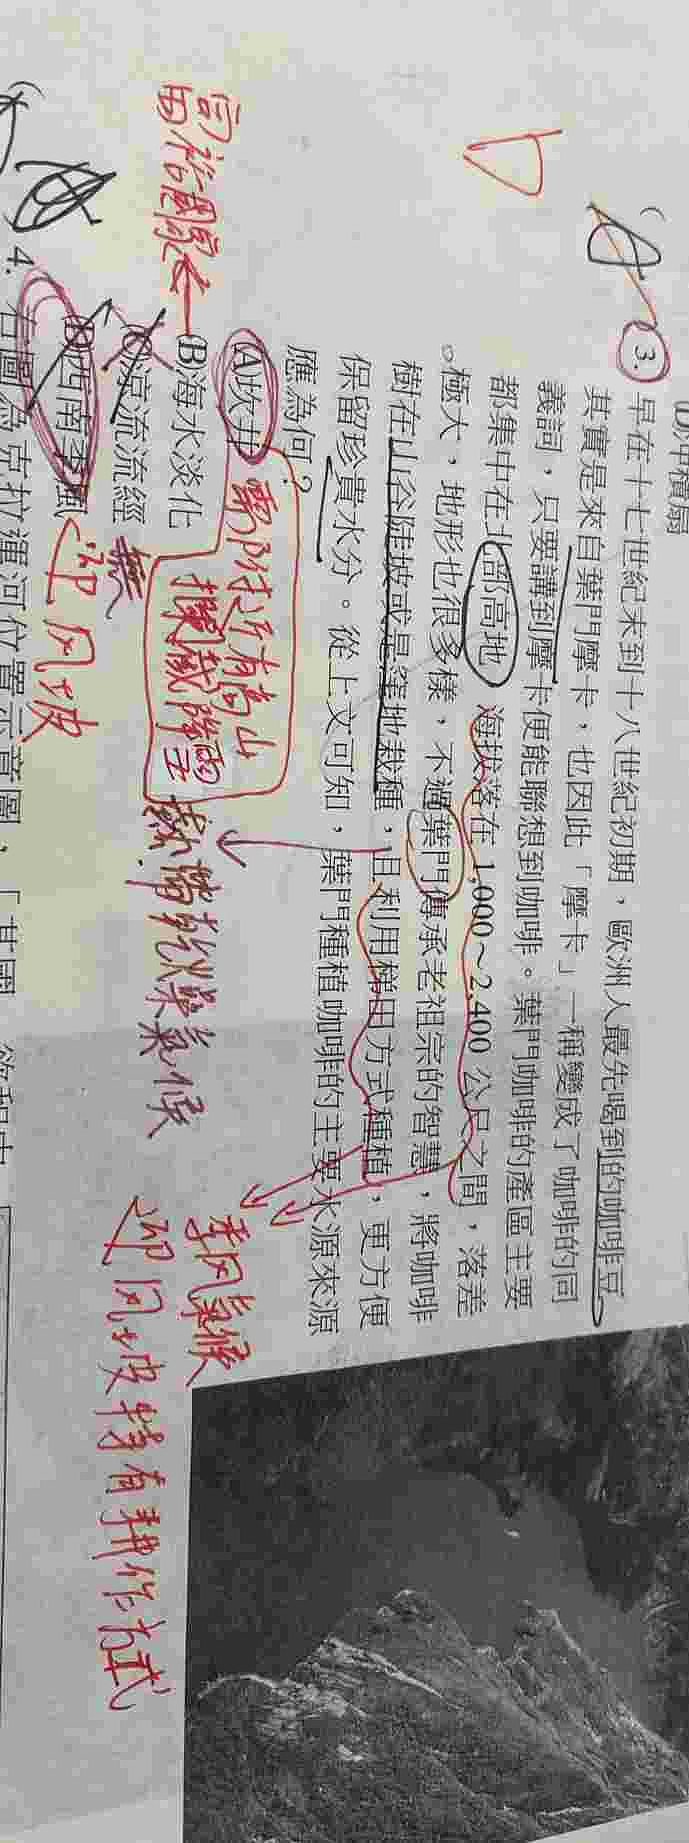 (D)沖積扇
3. 早在十七世紀末到十八世紀初期，歐洲人最先喝到的咖啡豆
其實是來自葉門摩卡，也因此「摩卡」一稱變成了咖啡的同
義詞，只要講到摩卡便能聯想到咖啡。葉門咖啡的產區主要
都集中在北部高地，海拔落在 1,000～2,400 公尺之間，落差
極大，地形也很多樣，不過葉門傳承老祖宗的智慧，將咖啡
樹在山谷陡坡或是窪地栽種，且利用梯田方式種植，更方便
保留珍貴水分。從上文可知，葉門種植咖啡的主要水源來源
應為何？
(A)坎井
需附近有高山
攔截降雨
(B)海水淡化
富裕國家
的
(C)涼流流經
無
熱帶乾燥氣候
(D)西南季風
迎风坡
季风氣候
迎风坡特有耕作方式
4. 右圖為克拉運河位置示意圖，「其國